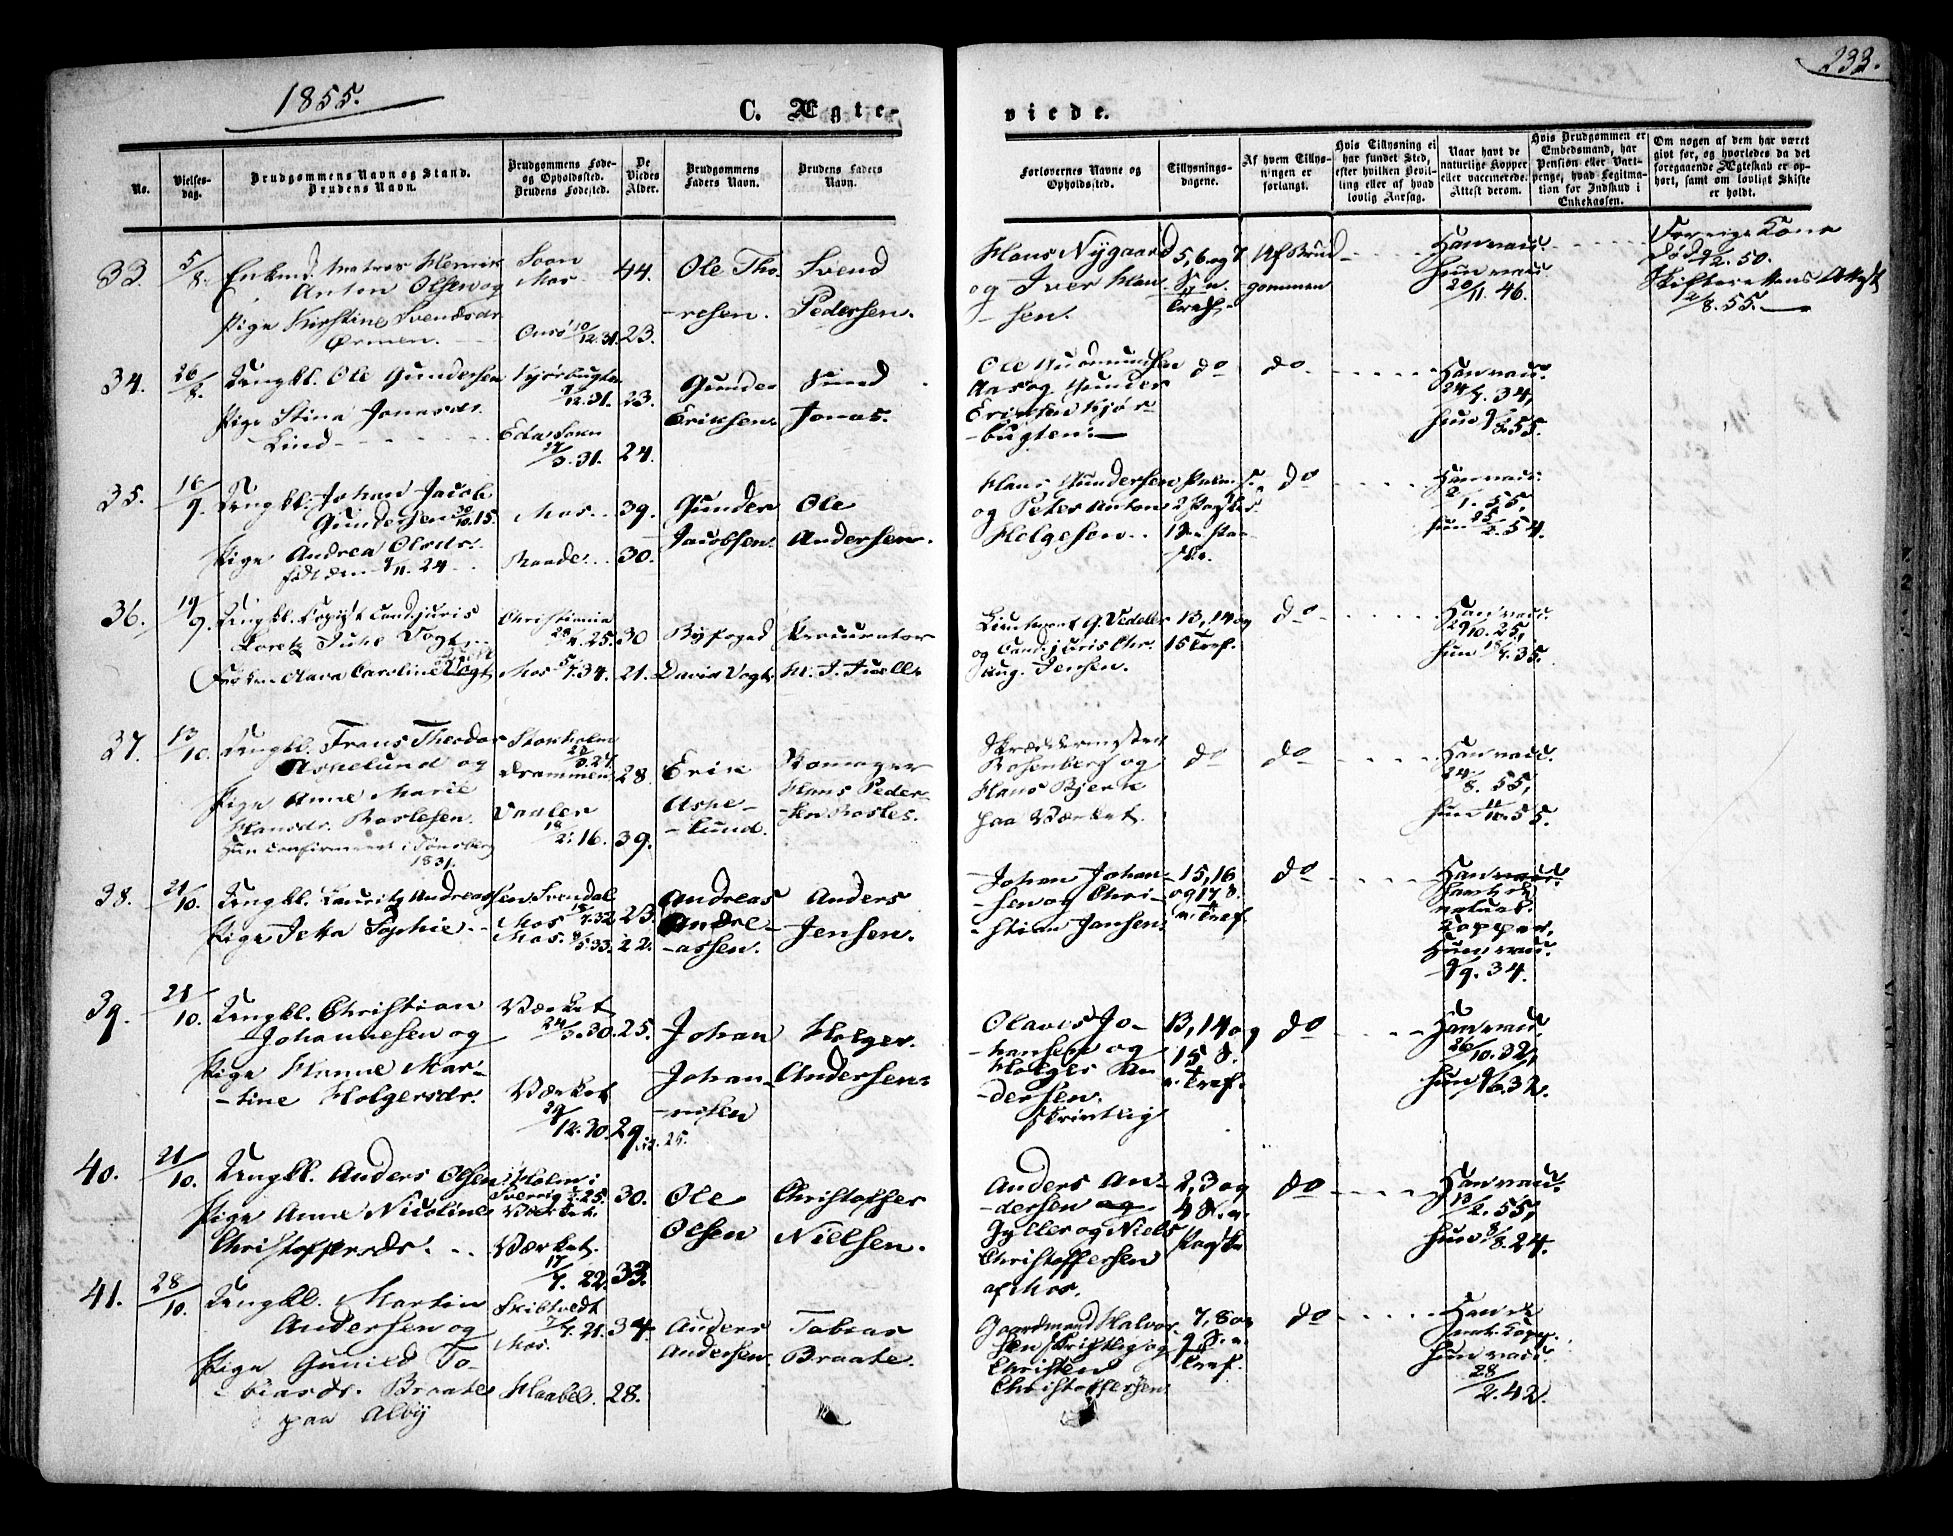 1855.
233.
C. Ægte-
viede.
No.
Vielses-
dag.
Brudgommens Navn og Stand.
Brudens Navn.
Brudgommens Føde-
og Opholdssted.
Brudens Fødested.
De
Viedes
Alder.
Brudgommens
Faders Navn.
Brudens Faders
Navn.
Forlovernes Navne og
Opholdssted.
Tillysnings-
dagene.
Af hvem Tillys-
ningen er
forlangt.
Hvis Tillysning ei
har fundet Sted,
efter hvilken Bevil-
ling eller af hvad
lovlig Aarsag.
Naar havt de
naturlige Kopper
eller vaccinerede.
Attest derom.
Hvis Brudgommen er
Embedsmand, har
Pension eller Vart-
penge, hvad Legitima-
tion for Indskud i
Enkekassen.
Om nogen af dem har været
givt før, og hvorledes da det
foregaaende Ægteskab er op-
hørt, samt om lovligt Skifte
er holdt.
33. 5/8. Enkmd. Matros Henrik
Anton Olsen og
Pige Kirstine Svendsdr.
Ørmen.
Soon
Mos
Onsø 10/12.31.
44.
23.
Ole Tho-
-resen.
Svend
Pedersen.
Hans Nygaard
og Iver Han-
sen.
5, 6 og 7
S. n.
Tref.
Af Brud-
gommen
Han vacc.
Hun vacc.
20/11. 46.
Forrige Kone
død 9/12. 50.
Skifterettens Attest
12/8. 55.
34. 26/8. Ungkl. Ole Gundersen
Pige Stina Jonasdr.
Lind
Kjørbugten
9/12.31.
Eda Sogn
27/3. 31.
23.
24.
Gunder
Eriksen.
Svend
Jonas.
Ole Gudmundsen
Aas og Gunder
Eriksen Kjør-
-bugten.
do
do.
Han vacc.
24/7. 34,
hun 9/8.55.
35. 16/9. Ungkl. Johan Jacob
Gundersen 30/10.15.
Pige Andrea Olsdr.
født den 9/11. 24
Mos
Raade
39.
30.
Gunder
Jacobsen.
Ole
Andersen.
Hans Gundersen
og Peter Anton
Helgesen.
do
Han vacc.
2/1. 55,
hun 25/2. 54.
36. 19/9. Ungkl. Kopist Cand juris
Loretz Juhl Vogt
Frøken Clara Caroline Vogt
Christiania
28/4. 25.
Mos 5/4. 34.
30
21.
Byfoged
David Vogt.
Procurator
M. J. Juell.
Lieutenant G. Vedeler
og Cand. juris Chr.
Aug. Jensen.
13, 14 og
15 Tref.
do
Han vacc.
29/10. 25,
hun 18/7. 35.
37. 13/10. Ungkl. Frans Theodor
Aspelund og
Pige Anne Marie
Hansdr. Roslesen.
Hun confirmeret i Tønsberg
1831.
Stockholm
27/3.27.
Drammen
Vaaler
18/2. 16.
28
39.
Erik
Aspe-
-lund.
Romager
Hans Peder-
-sen Rosles.
Skræddermester
Rosenberg og
Hans Bjerk
paa Værket.
do
do
Han vacc.
24/8. 55,
hun 11/10. 55.
38. 21/10. Ungkl. Lauritz Andreassen
Pige Jetta Sophie
Svendal
Mos 18/7.32.
Mos. 9/5 33.
23.
22.
Andreas
Andre-
-assen.
Anders
Jensen.
Johan Johan-
-sen og Chri-
-stian Jansen.
15, 16
og 17 S.
n. Tref.
do
Han vacc.
naturl.
Kopper,
Hun vacc.
9/9. 34.
39. 21/10. Ungkl. Christian
Johannesen og
Pige Hanne Mar-
-tine Holgersdr.
Værket
24/3. 30.
Værket
29/12. 30.
25.
29
Johan
Johan-
-nesen
Holger
Andersen.
Olaves Jo-
-hansen og
Holger An-
-dersen.
Skriftlig
13, 14 og
15 S.
n. Tref.
do
Han vacc.
26/10. 32,
hun 9/10 32.
40. 21/10. Ungkl. Anders Olsen
Pige Anne Nicoline
Christoffersdr.
Holm i
Sverrig
Værket.
Værket.
17/7. 22.
30.
33.
Ole
Olsen
Christoffer
Nielsen.
Anders An-
-dersen
Gyller og Niels
Christoffersen
af Mos.
2, 3 og
4 S. n.
Paaske
do
Han vacc.
13/2. 55,
hun 3/8. 24.
41. 28/10. Ungkl. Martin
Andersen og
Pige Gunild To-
-biasdr. Braate
paa Alby
Skibtvedt
7/7. 21.
Mos.
Haabel.
34
28.
Anders
Andersen
Tobias
Braate.
Gaardmand Halvor-
sen skriftlig og
Christen
Christoffersen.
7, 8 og
9 S. n.
Tref.
do
Han h.
nat. Kopp.
hun vacc.
28/2. 42.